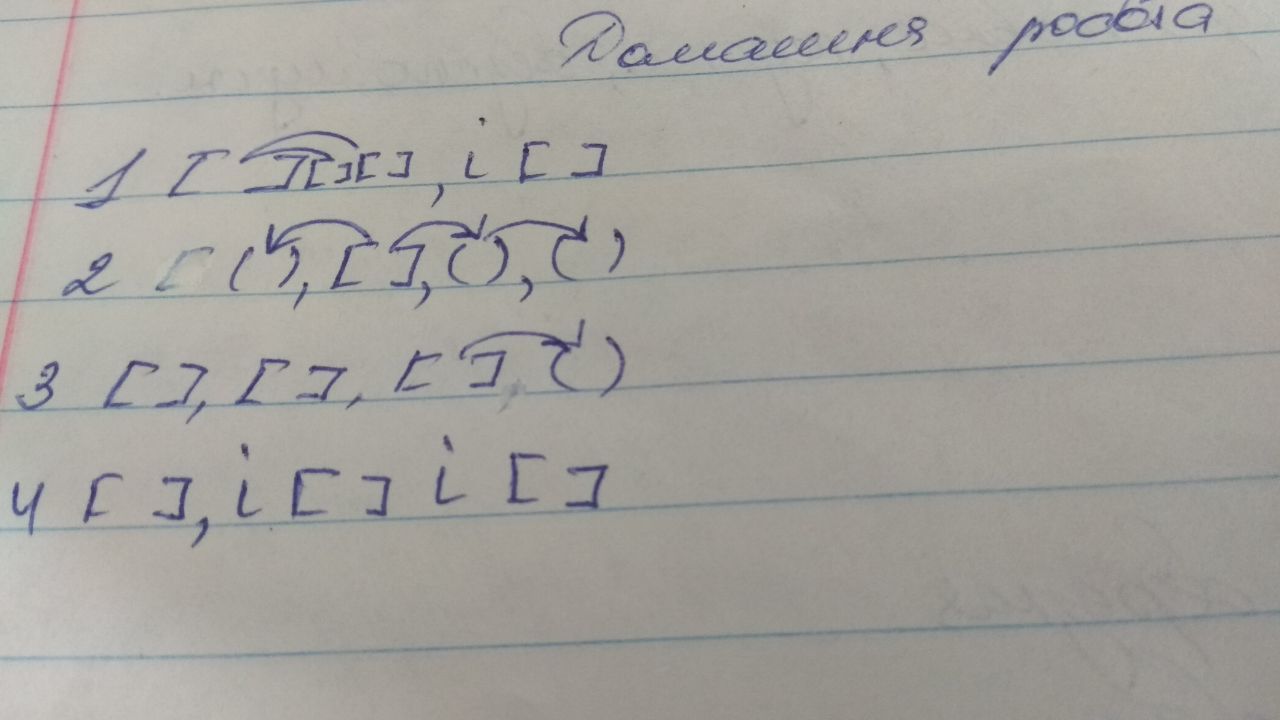 Домашня робота
1 [ ][][], і []
2 [ (), [], (), ()
3 [], [], [], ()
4 [], і [] і []